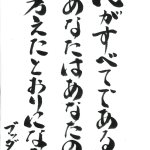 心がすべてである
あなたはあなたの
考えたとおりになる
ブッダ